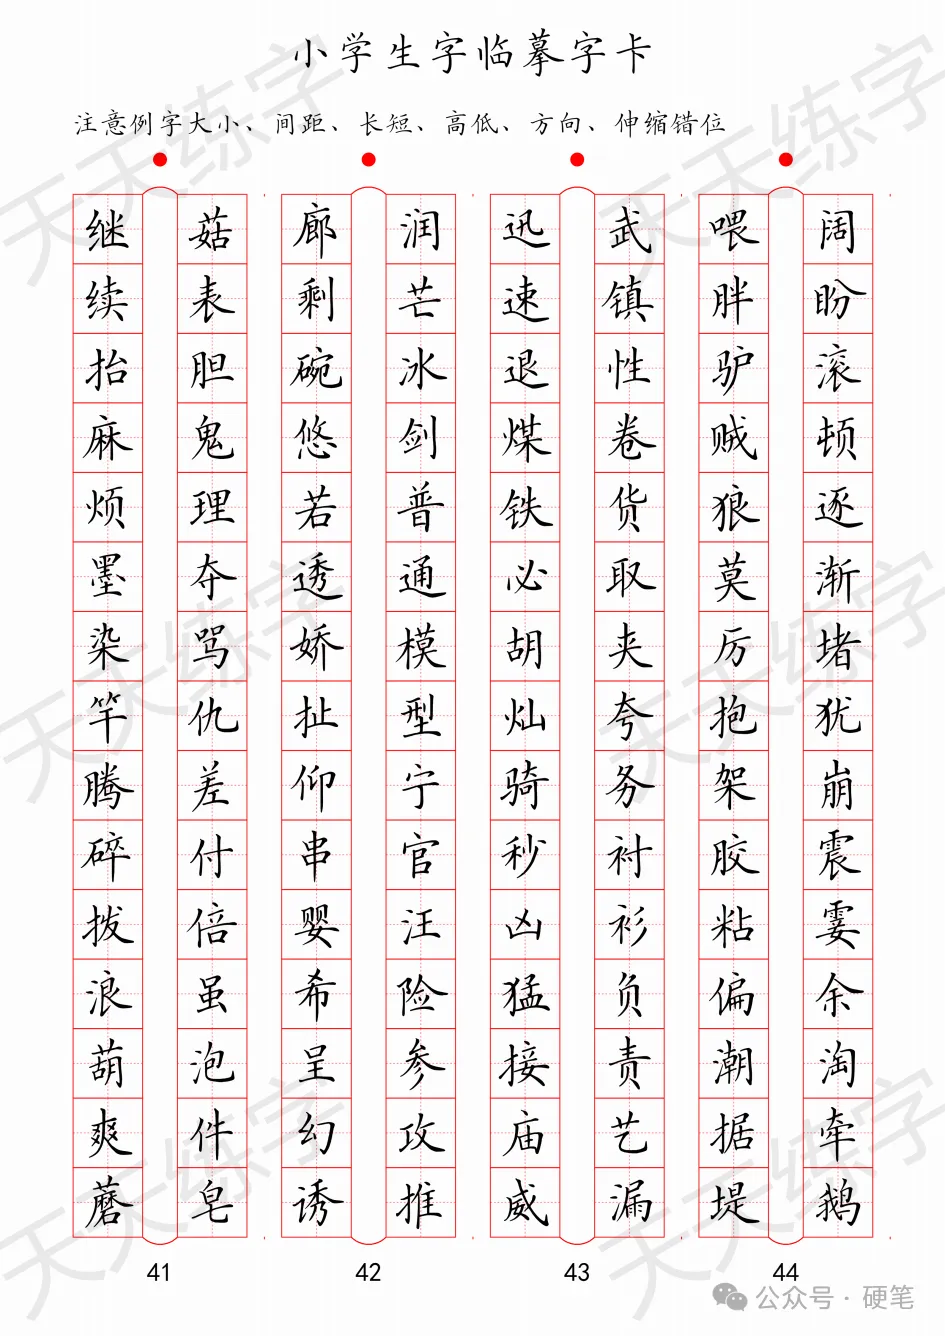 小学生字临摹字卡
注意例字大小、间距、长短、高低、方向、伸缩错位
继 菇 廊 润 迅 武 喂 阔
续 表 剩 芒 速 镇 胖 盼
抬 胆 碗 冰 退 性 驴 滚
麻 鬼 悠 剑 煤 卷 贼 顿
烦 理 若 普 铁 货 狼 逐
墨 夺 透 通 必 取 莫 渐
染 骂 娇 模 胡 夹 厉 堵
竿 仇 扯 型 灿 夸 抱 犹
腾 差 仰 宁 骑 务 架 崩
碎 付 串 官 秒 衬 胶 震
拨 倍 婴 汪 凶 衫 粘 霎
浪 虽 希 险 猛 负 偏 余
葫 泡 呈 参 接 责 潮 淘
爽 件 幻 攻 庙 艺 据 牵
蘑 皂 诱 推 威 漏 堤 鹅
41 42 43 44
公众号 · 硬笔
天天练字
天天练字
天天练字
天天练字
天天练字
天天练字